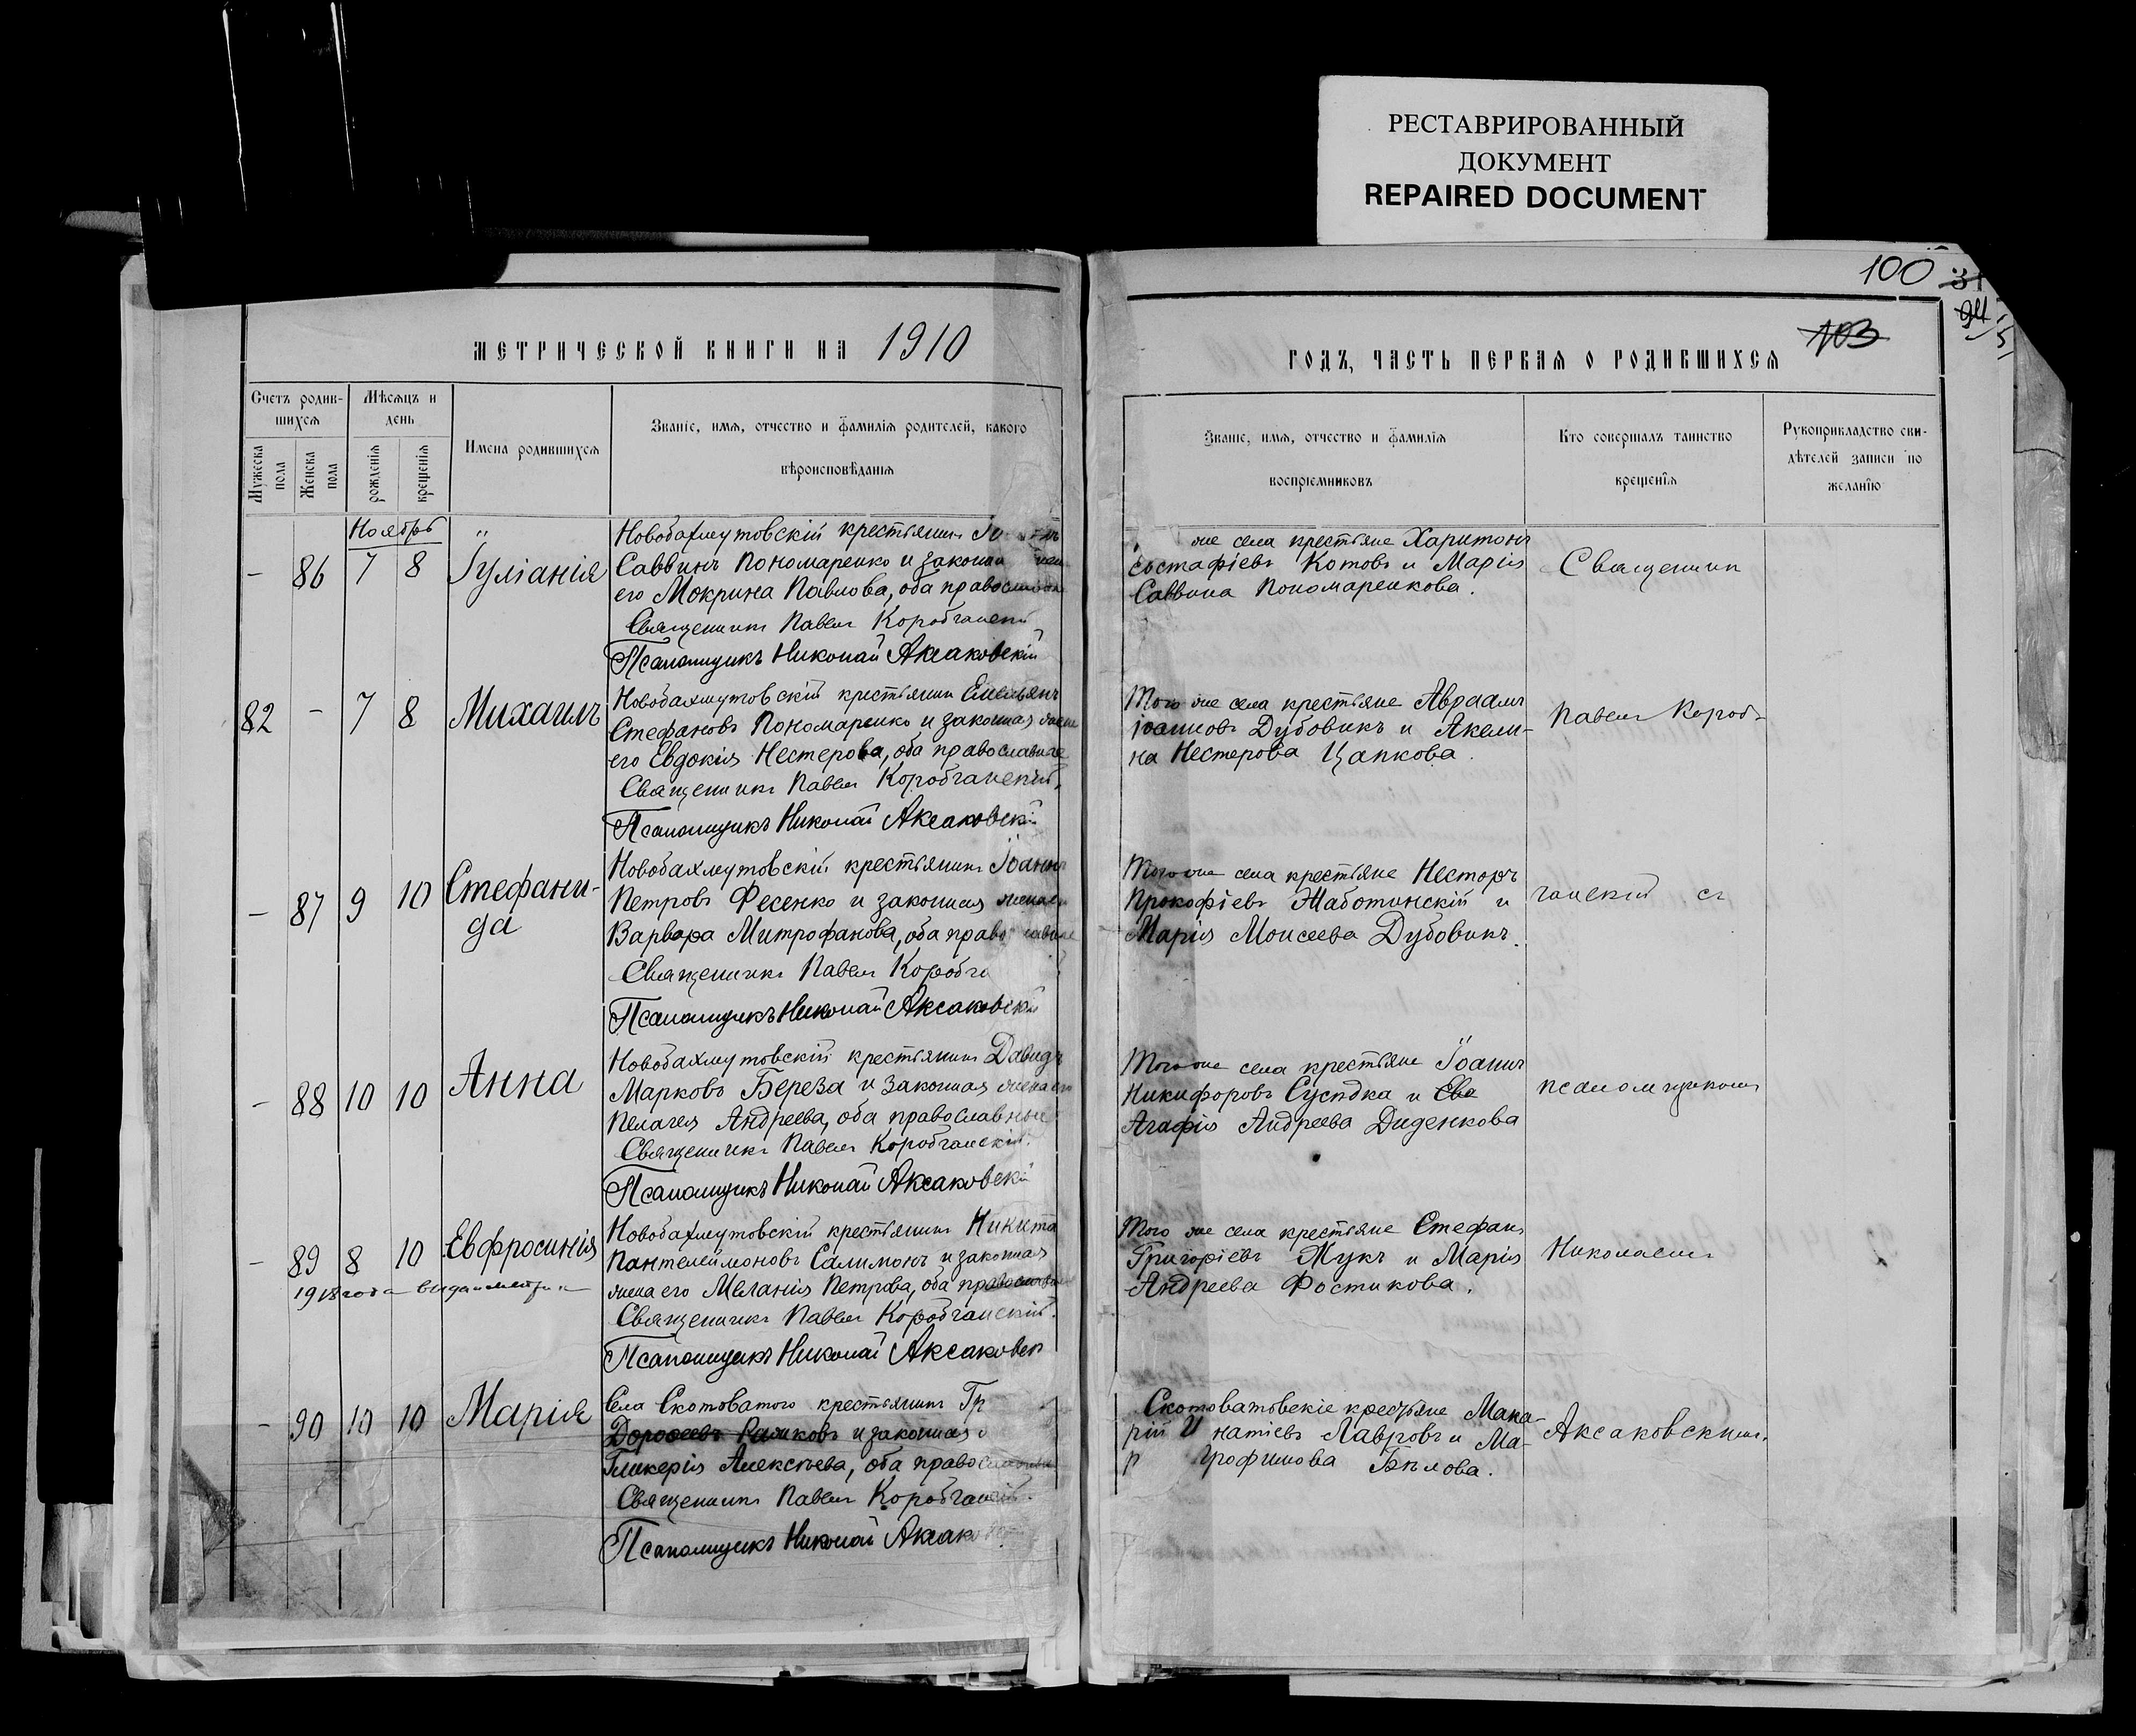 РЕСТАВРИРОВАННЫЙ
ДОКУМЕНТ
REPAIRED DOCUMENT
МЕТРИЧЕСКОЙ КНИГИ НА 1910
Счетъ родив-
шихся
Мужеска пола
Женска пола
Мѣсяцъ и
день
рожденія
крещенія
Имена родившихся
Званіе, имя, отчество и фамилія родителей, какого
вѣроисповѣданія
Ноябрь
- 86 7 8 Іуліанія
Новобахмутовскій крестьянинъ
Саввинъ Пономаренко и законная
его Мокрина Павлова, оба православные
Священникъ Павелъ Коробчанскій
Псаломщикъ Николай Аксаковскій
82 - 7 8 Михаилъ
Новобахмутовскій крестьянинъ Емельянъ
Стефановъ Пономаренко и законная жена
его Евдокія Нестерова, оба православные
Священникъ Павелъ Коробчанскій.
Псаломщикъ Николай Аксаковскій
- 87 9 10 Стефани-
да
Новобахмутовскій крестьянинъ Іоаннъ
Петровъ Фесенко и законная жена его
Варвара Митрофанова, оба православные
Священникъ Павелъ Коробч
Псаломщикъ Николай Аксаковскій
- 88 10 10 Анна
Новобахмутовскій крестьянинъ Давидъ
Марковъ Береза и законная жена его
Пелагея Андреева, оба православные
Священникъ Павелъ Коробчанскій.
Псаломщикъ Николай Аксаковскій
- 89 8 10 Евфросинія
1918 года
Новобахмутовскій крестьянинъ Никита
Пантелеймоновъ Салимонъ и законная
жена его Меланія Петрова, оба православные
Священникъ Павелъ Коробчанскій.
Псаломщикъ Николай Аксаковск
- 90 10 10 Марія
Села Скотоватого крестьянинъ Гр
Дорофеевъ Рамковъ и законная
Гликерія Алексѣева, оба православные
Священникъ Павелъ Коробчанскій.
Псаломщикъ Николай Аксаков
100
31
94
103
ГОДЪ, ЧАСТЬ ПЕРВАЯ О РОДИВШИХСЯ
Званіе, имя, отчество и фамилія
воспріемниковъ
Кто совершалъ таинство
крещенія
Рукоприкладство сви-
дѣтелей записи по
желанію
же села крестьяне Харитонъ
Евстафіевъ Котовъ и Марія
Саввина Пономаренкова.
Священник
Того же села крестьяне Авраамъ
Іоанновъ Дубовикъ и Акели-
на Нестерова Цапкова.
Павелъ Короб-
Того же села крестьяне Несторъ
Прокофіевъ Жаботинскій и
Марія Моисеева Дубовикъ.
чанскій съ
Того же села крестьяне Іоаннъ
Никифоровъ Сусѣдка и Ева
Агафія Андреева Диденкова
псаломщикомъ
Того же села крестьяне Стефанъ
Григоріевъ Жукъ и Марія
Андреева Фостикова.
Николаемъ
Скотоватовскіе крестьяне Мака-
рій И натіевъ Лавровъ и Ма-
р трофимова Бѣлова.
Аксаковскимъ.